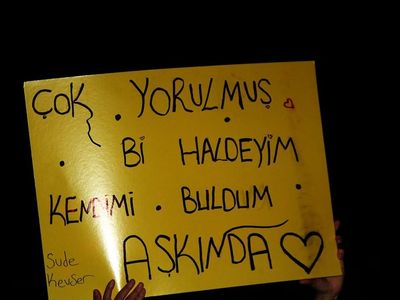 ÇOK YORULMUŞ
Bİ HALDEYİM
KENDİMİ BULDUM
AŞKINDA
Sude
Kevser